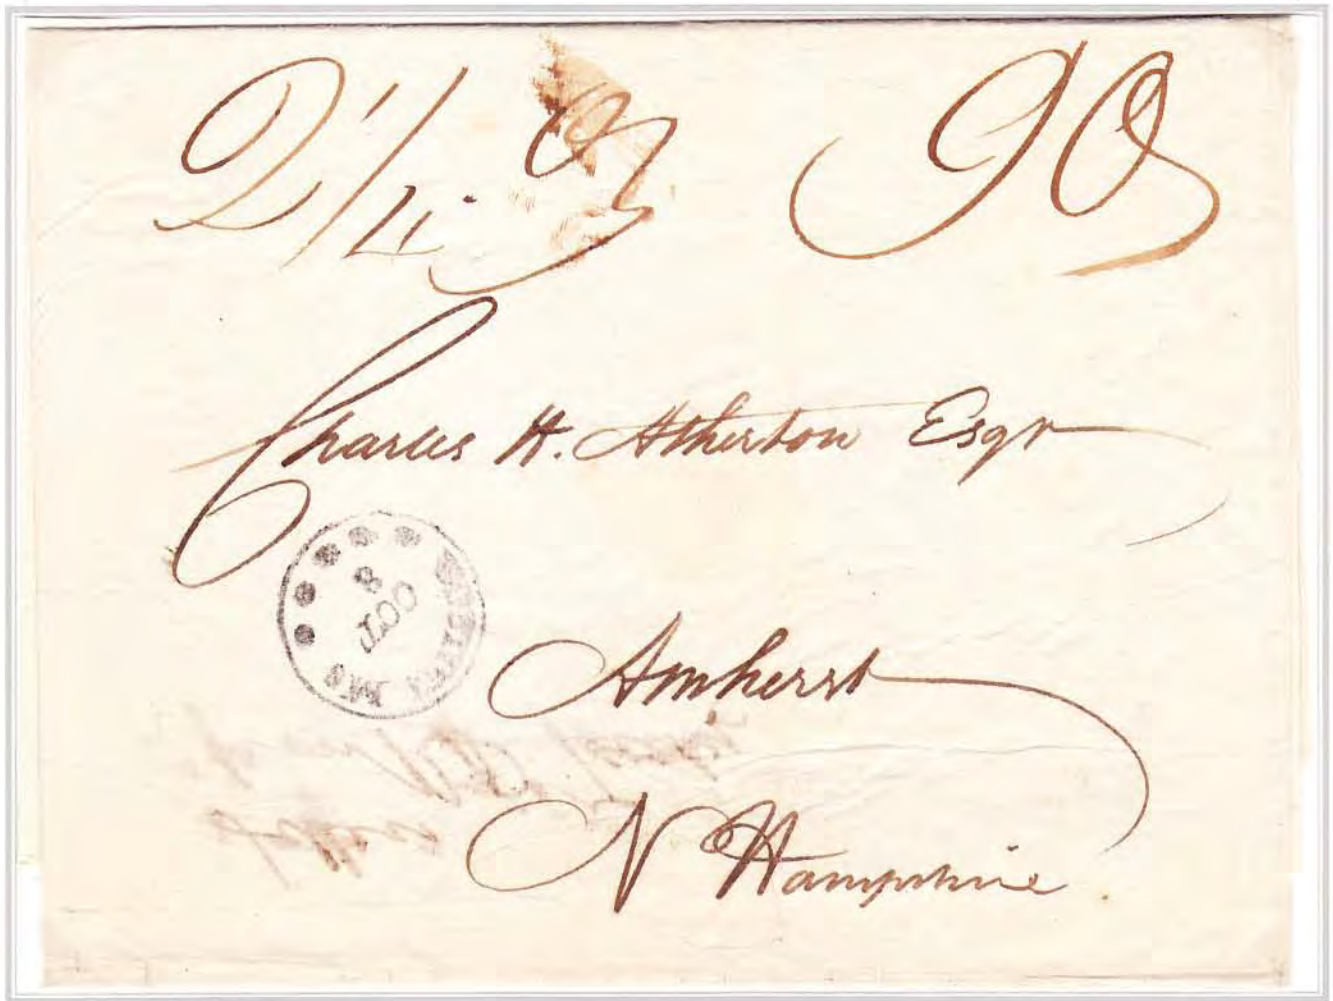 2 1/4 oz 90
Charles H. Atherton Esqr
OCT
8
Ms
Amherst
N Hampshire